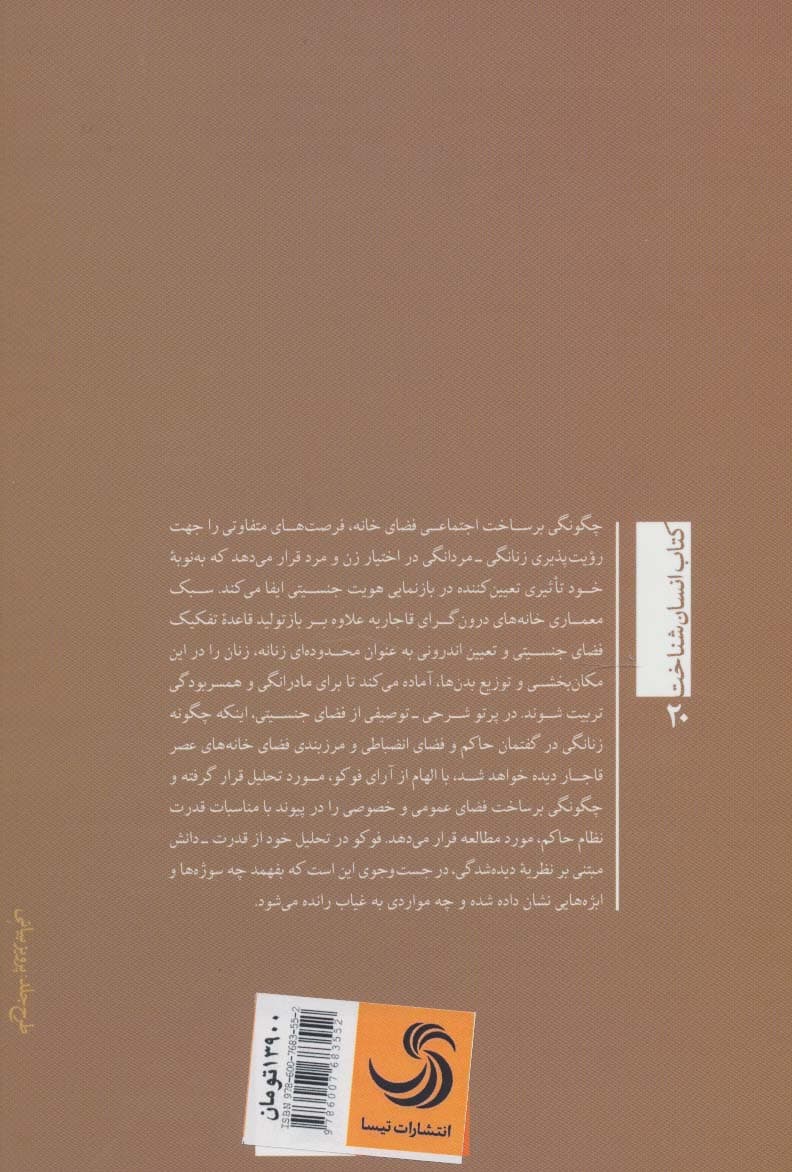 کتاب انسان‌شناخت
۲۰
چگونگی برساخت اجتماعی فضای خانه، فرصت‌های متفاوتی را جهت
رؤیت‌پذیری زنانگی ـ مردانگی در اختیار زن و مرد قرار می‌دهد که به‌نوبهٔ
خود تأثیری تعیین‌کننده در بازنمایی هویت جنسیتی ایفا می‌کند. سبک
معماری خانه‌های درون‌گرای قاجاریه علاوه بر بازتولید قاعدهٔ تفکیک
فضای جنسیتی و تعیین اندرونی به عنوان محدوده‌ای زنانه، زنان را در این
مکان‌بخشی و توزیع بدن‌ها، آماده می‌کند تا برای مادرانگی و همسربودگی
تربیت شوند. در پرتو شرحی ـ توصیفی از فضای جنسیتی، اینکه چگونه
زنانگی در گفتمان حاکم و فضای انضباطی و مرزبندی فضای خانه‌های عصر
قاجار دیده خواهد شد، با الهام از آرای فوکو، مورد تحلیل قرار گرفته و
چگونگی برساخت فضای عمومی و خصوصی را در پیوند با مناسبات قدرت
نظام حاکم، مورد مطالعه قرار می‌دهد. فوکو در تحلیل خود از قدرت ـ دانش
مبتنی بر نظریهٔ دیده‌شدگی، در جست‌وجوی این است که بفهمد چه سوژه‌ها و
ابژه‌هایی نشان داده شده و چه مواردی به غیاب رانده می‌شود.
طرح جلد: پرویز بیانی
انتشارات تیسا
9786007683552
ISBN 978-600-7683-55-2
۱۳۹۰۰تومان